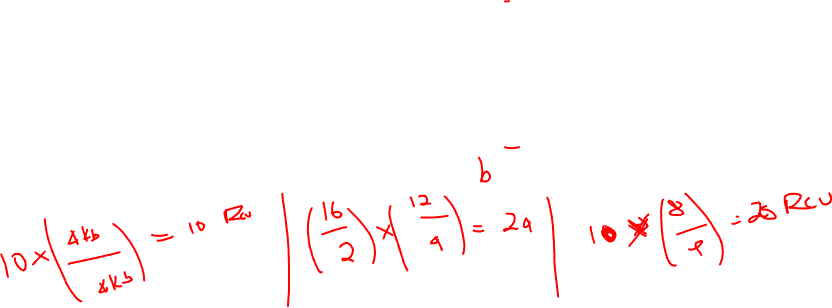 b
10 × (4kb / 4kb) = 10 Rcu | (16 / 2) × (12 / 4) = 24 | 10 × (8 / 4) = 20 RCU